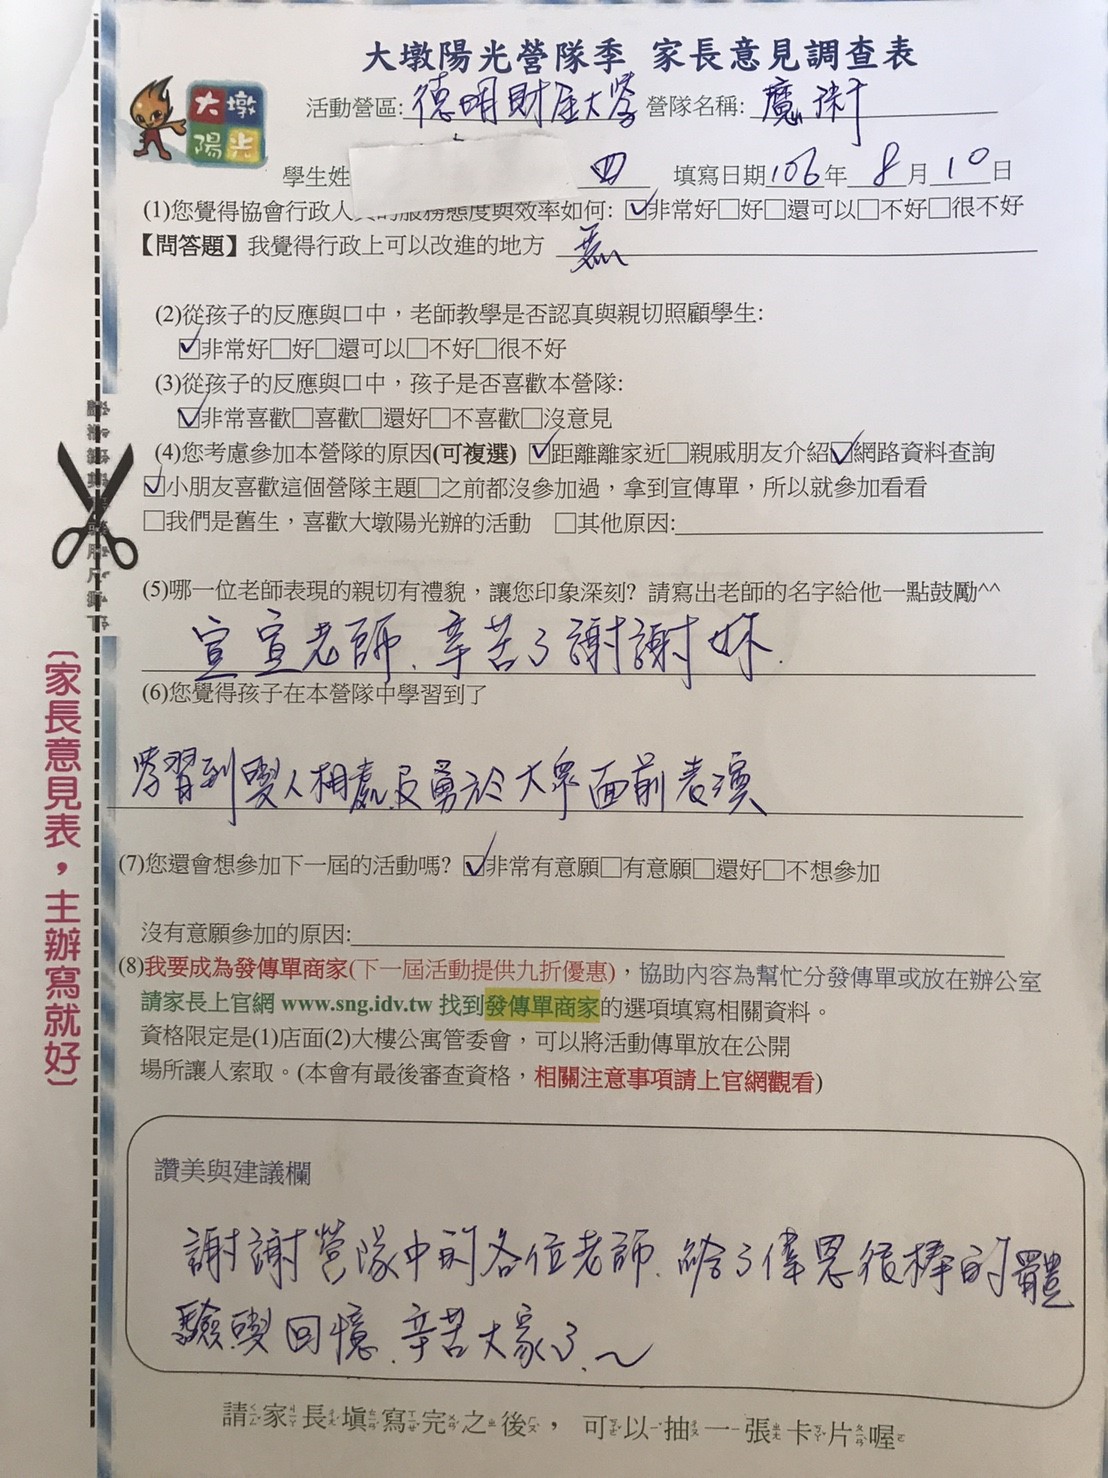 大墩陽光營隊季 家長意見調查表
大墩
陽光
活動營區:德明財金大學 營隊名稱:魔術
學生姓 四 填寫日期106年8月10日
(1)您覺得協會行政人員的服務態度與效率如何: ☑非常好□好□還可以□不好□很不好
【問答題】我覺得行政上可以改進的地方 無
(2)從孩子的反應與口中，老師教學是否認真與親切照顧學生:
☑非常好□好□還可以□不好□很不好
(3)從孩子的反應與口中，孩子是否喜歡本營隊:
☑非常喜歡□喜歡□還好□不喜歡□沒意見
(4)您考慮參加本營隊的原因(可複選) ☑距離離家近□親戚朋友介紹☑網路資料查詢
☑小朋友喜歡這個營隊主題□之前都沒參加過，拿到宣傳單，所以就參加看看
□我們是舊生，喜歡大墩陽光辦的活動 □其他原因:
(5)哪一位老師表現的親切有禮貌，讓您印象深刻? 請寫出老師的名字給他一點鼓勵^^
宣宣老師.辛苦了謝謝妳.
(6)您覺得孩子在本營隊中學習到了
學習到與人相處及勇於大眾面前表演
(7)您還會想參加下一屆的活動嗎? ☑非常有意願□有意願□還好□不想參加
沒有意願參加的原因:
(8)我要成為發傳單商家(下一屆活動提供九折優惠)，協助內容為幫忙分發傳單或放在辦公室
請家長上官網 www.sng.idv.tw 找到發傳單商家的選項填寫相關資料。
資格限定是(1)店面(2)大樓公寓管委會，可以將活動傳單放在公開
場所讓人索取。(本會有最後審查資格，相關注意事項請上官網觀看)
讚美與建議欄
謝謝營隊中的各位老師.給了偉恩很棒的體
驗與回憶.辛苦大家了.~
請家長填寫完之後，可以抽一張卡片喔
〔家長意見表，主辦寫就好〕